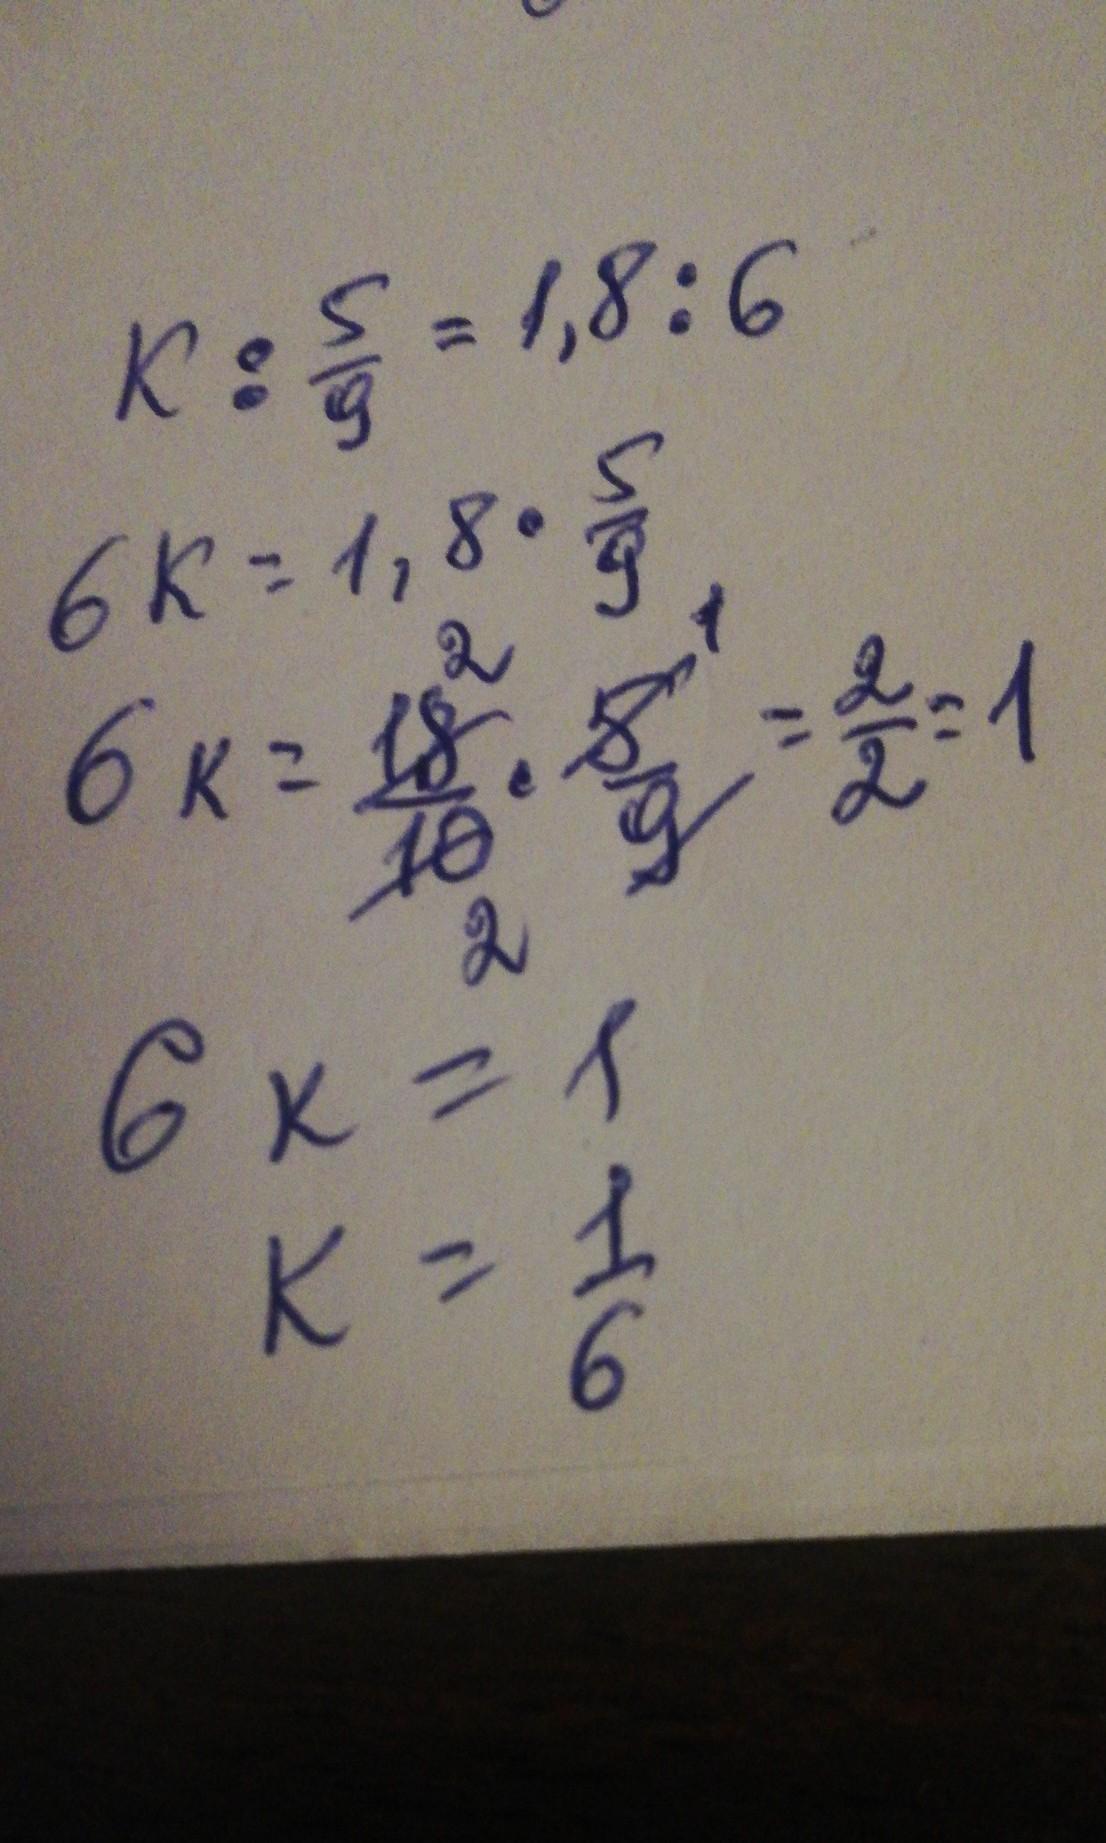 K : 5/9 = 1,8 : 6
6K = 1,8 · 5/9
6K = 18/10 · 5/9 = 2/2 = 1
2 1
2
6K = 1
K = 1/6